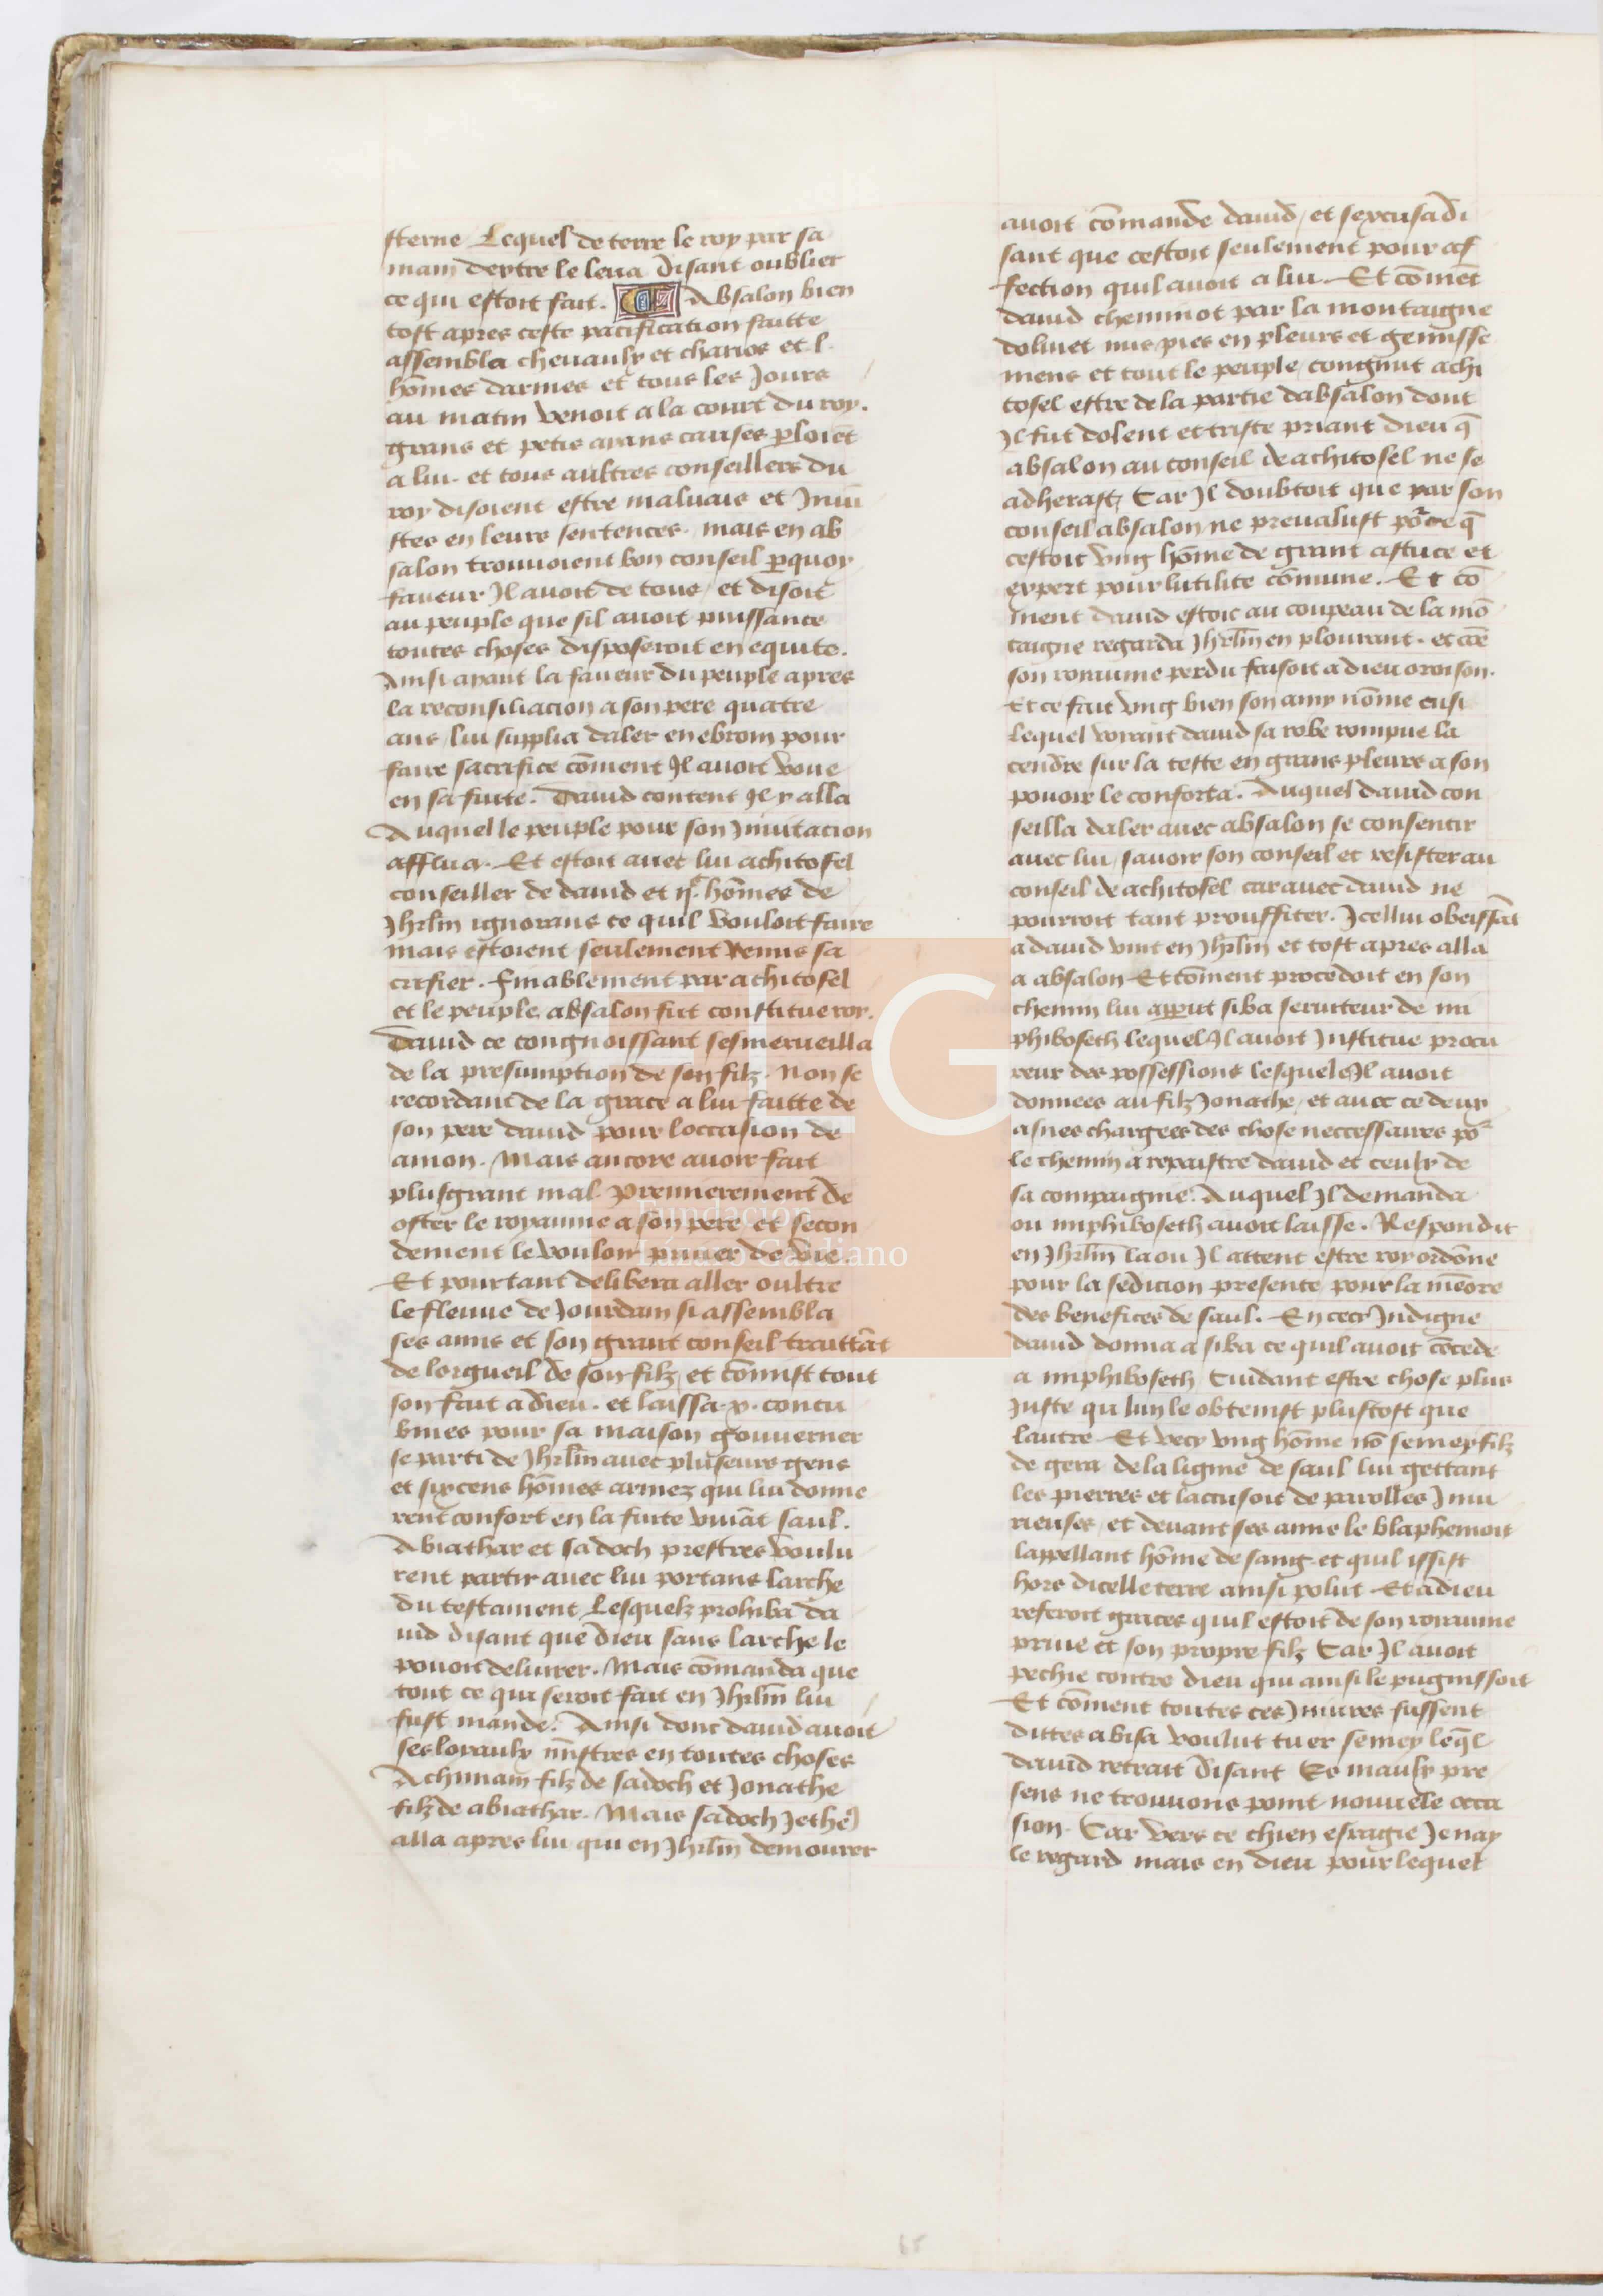 sterne Lequel de terre le roy par sa
main dextre le leua Disant oublier
ce qui estoit fait. Absalon bien
tost apres ceste pacification faitte
assembla cheuaulx et charios et l.
hōmes darmes et tous les Jours
au matin venoit a la court du roy.
grans et petis aians causes ꝑloiēt
a lui et tous aultres conseillers du
roy disoient estre maluais et Iniu
stes en leurs sentences. mais en ab
salon trouuoient bon conseil ꝑquoy
faueur Il auoit de tous / et disoit
au peuple que sil auoit puissance
toutes choses disposeroit en equite.
Ainsi aiant la faueur du peuple apres
la reconsiliacion a son pere quatre
ans / lui supplia daler en ebrom pour
faire sacrifice cōment Il auoit voue
en sa fuite. Dauid content Il y alla
Auquel le peuple pour son Inuitacion
afflua. Et estoit auec lui achitofel
conseiller de dauid et hōmes de
Jhrlm ignorans ce quil vouloit faire
mais estoient seulement venus sa
crifier. Finablement par achitofel
et le peuple absalon fut constitue roy.
Dauid ce congnoissant sesmerueilla
de la presumption de son filz. Non se
recordant de la grace a lui faitte de
son pere dauid pour loccasion de
amon. Mais ancore auoir fait
plusgrant mal. Premierement de
oster le royaume a son pere et secon
dement le vouloir priuer de vie.
Et pourtant delibera aller oultre
le fleuue de Jourdam si assembla
ses amis et son grant conseil traittāt
de lorgueil de son filz / et cōmist tout
son fait a dieu. et laissa .x. concu
bines pour sa maison gouuerner
se parti de Jhrlm auec pluseurs gens
et sixcens hōmes armez qui lui donne
rent confort en la fuite viuāt saul.
Abiathar et sadoch prestres voulu
rent partir auec lui portans larche
du testament Lesquelz prohiba da
uid disant que dieu sans larche le
pouoit deliurer. Mais cōmanda que
tout ce qui seroit fait en Jhrlm lui
fust mande. Ainsi donc dauid auoit
ses loyaulx mīstres en toutes choses
Achimam filz de sadoch et Jonathe
filz de abiathar. Mais sadoch
alla apres lui qui en Jhrlm demourer
auoit cōmande dauid / et sexcusa di
sant que cestoit seulement pour af
fection quil auoit a lui. Et cōmēt
dauid cheminot par la montaigne
doliuet nus pies en pleurs et gemisse
mens et tout le peuple / congnut achi
tofel estre de la partie dabsalon dont
Il fut dolent et triste priant dieu q̄
absalon au conseil de achitofel ne se
adherast / Car Il doubtoit que par son
conseil absalon ne preualust po͛ce q̄
cestoit vng hōme de grant astuce et
expert pour lutilite cōmune. Et cō
ment dauid estoit au coupeau de la mō
taigne regarda Jhrlm en plourant. et cōe
son roiaume perdu faisoit a dieu oroison.
Et ce fait vng bien son amy nōme cusi
Lequel voiant dauid sa robe rompue la
cendre sur la teste en grans pleurs a son
pouoir le conforta. Auquel dauid con
seilla daler auec absalon se consentir
auec lui / sauoir son conseil et resister au
conseil de achitofel car auec dauid ne
pourroit tant prouffiter. Icellui obeissāt
a dauid vint en Jhrlm et tost apres alla
a absalon Et cōment procedoit en son
chemin lui apparut siba seruiteur de mi
phiboseth lequel Il auoit Institue procu
reur des possessions lesquels Il auoit
donnees au filz Jonathe / et auec ce deux
asnes chargees des chose neccessaires po͛
le chemin a repaistre dauid et ceulx de
sa compaignie. Auquel Il demanda
ou miphiboseth auoit laisse. Respondit
en Jhrlm la ou Il attent estre roy ordōne
pour la sedicion presente pour la mēore
des benefices de saul. En cecy Indigne
dauid donna a siba ce quil auoit cōcede
a miphiboseth Cuidant estre chose plus
Iuste qu luy le obteinst plustost que
lautre Et vecy vng hōme nō semey filz
de gera de la lignie de saul lui gettant
les pierres et laccusoit de parolles Iniu
rieuses / et deuant ses amis le blaphemoit
lappellant hōme de sang et quil issist
hors dicelle terre ainsi polut Et a dieu
referoit graces quil estoit de son roiaume
priue et son propre filz Car Il auoit
pechie contre dieu qui ainsi le pugnissoit
Et cōment toutes ces Iniures fussent
dittes abisa voulut tuer semey leq̄l
dauid retrait Disant Es maulx pre
sens ne trouuons point nouuele occa
sion. Car vers ce chien esragie Je nay
le regard mais en dieu pour lequel
LG
Fundación
Lázaro Galdiano
65